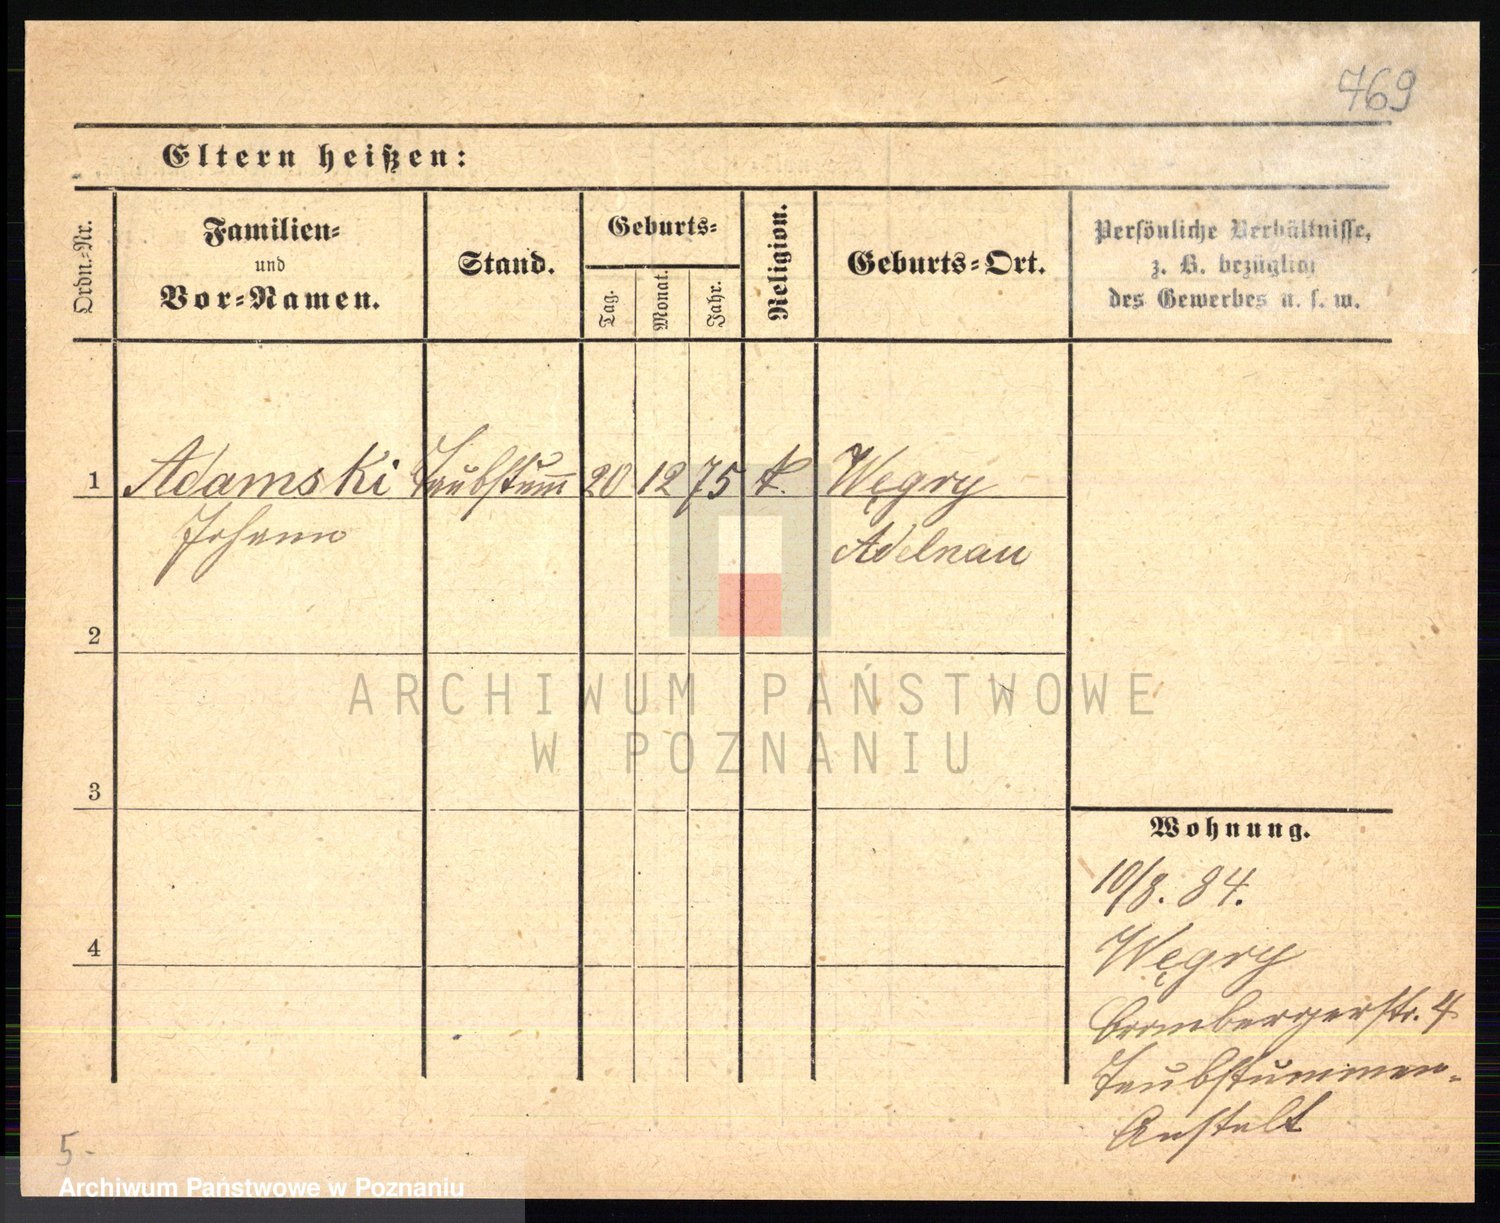 769
Eltern heißen:
Ordn.-Nr.
Familien-
und
Vor-Namen.
Stand.
Geburts-
Tag.
Monat.
Jahr.
Religion.
Geburts-Ort.
Persönliche Verhältnisse,
z. B. bezüglich
des Gewerbes u. s. w.
1 Adamski Taubstumm 20 12 75 k. Węgry
Johann Adelnau
2
3
4
Wohnung.
10/8. 84.
Węgry
Brombergerstr. 4
Taubstummen-
Anstalt
5-
ARCHIWUM PAŃSTWOWE
W POZNANIU
Archiwum Państwowe w Poznaniu